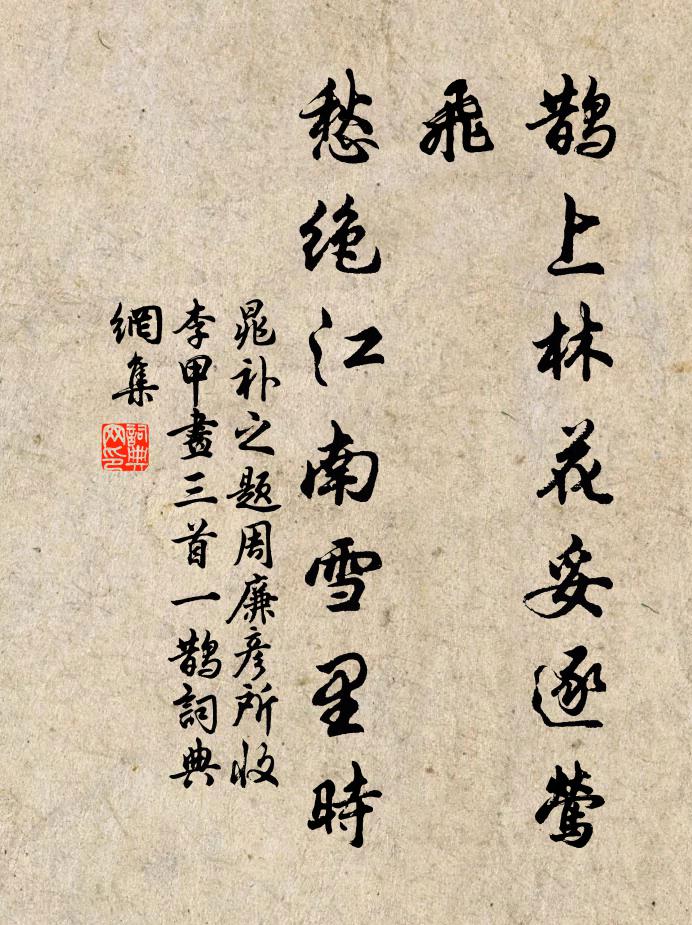 鹊上林花妥逐莺
飛
愁绝江南雪里時
晁补之题周廉彦所收
李甲畫三首一鹊詞典
網集
詞典
网印